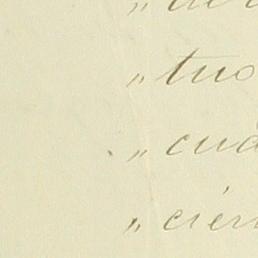 "
" tuo
" cua
" cier